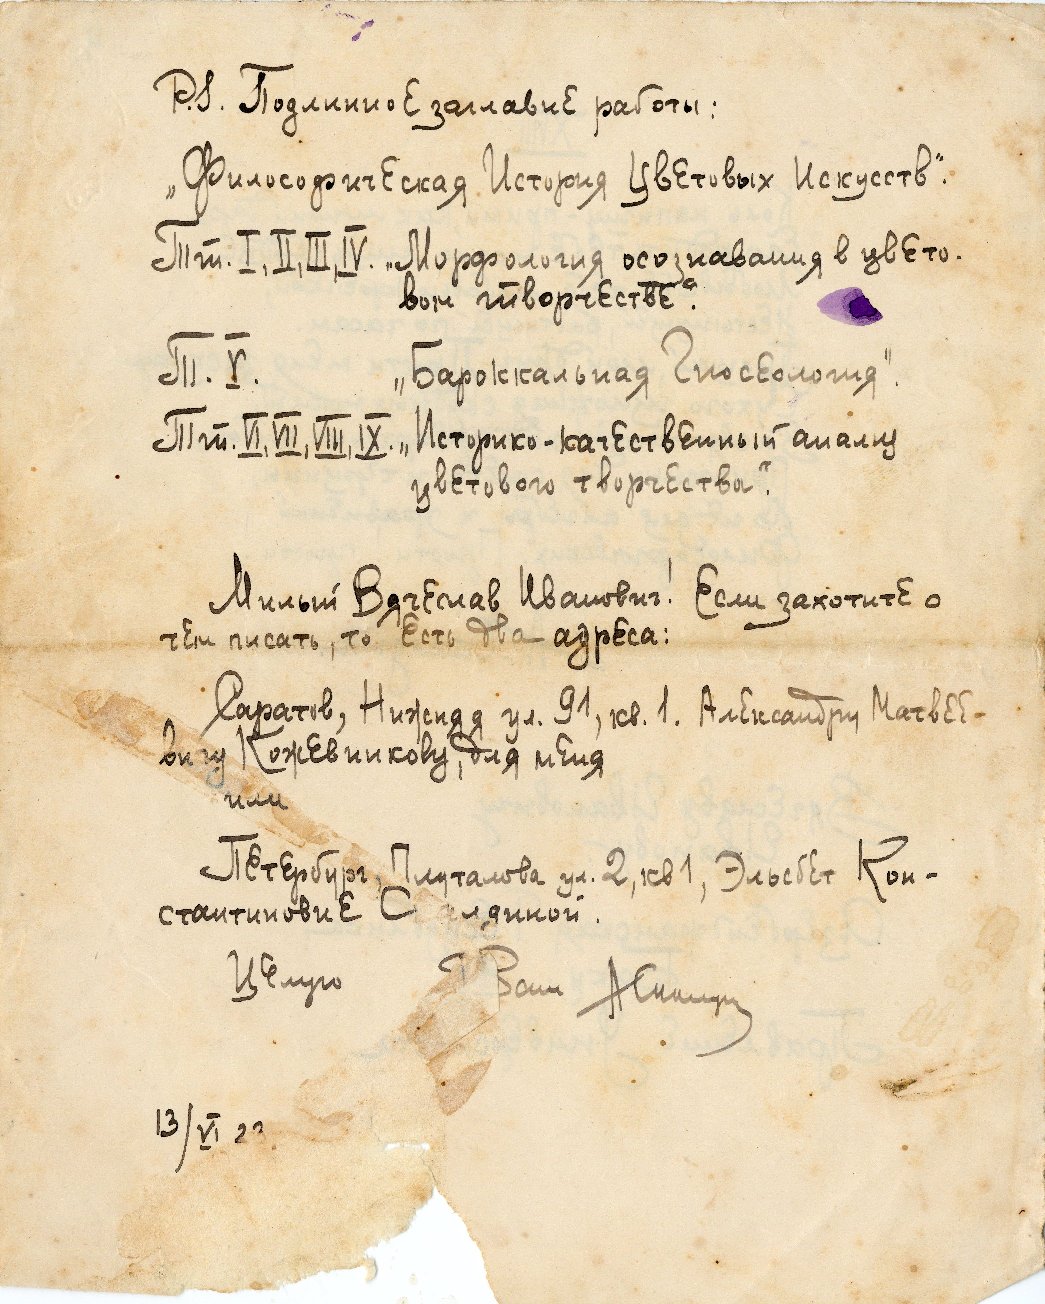 P.S. Подлинное заглавие работы:
„Философическая История Цветовых Искусств“.
Тт. I, II, III, IV. „Морфология осознавания в цвето-
вом творчестве“.
Т. V. „Бароккальная Гносеология“.
Тт. VI, VII, VIII, IX. „Историко-качественный анализ
цветового творчества“.
Милый Вячеслав Иванович! Если захотите о
чем писать, то есть два адреса:
Саратов, Нижняя ул. 91, кв. 1. Александру Матвее-
вичу Кожевникову, для меня
или
Петербург, Плуталова ул. 2, кв 1, Эльсбет Кон-
стантиновне
Целую Ваш
13/VI 23.